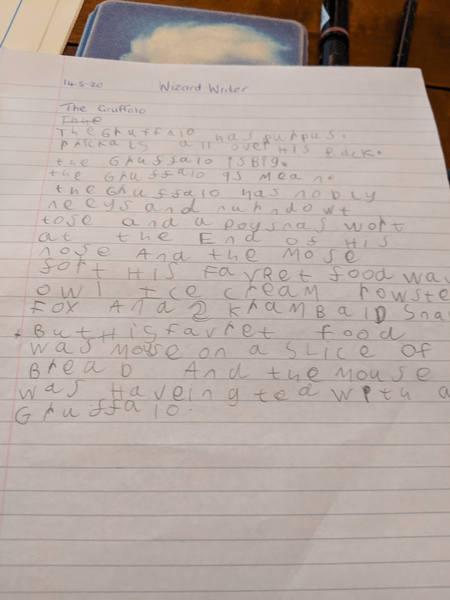 14.5.20 Wizard Writer
The Gruffalo
The Gruffalo has purpus.
prickals all over His Back.
the Gruffalo is Big.
the Gruffalo is mean.
the Gruffalo has nobly
neeys and turndowt
tose and a poysnas wort
at the End of His
nose And the Mose
fort His favret food was
owl Ice cream rowste
Fox And 2 kramBald Sna
But His favret food
was mose on a slice of
BreaD And the mouse
was Haveing ted with a
Gruffalo.